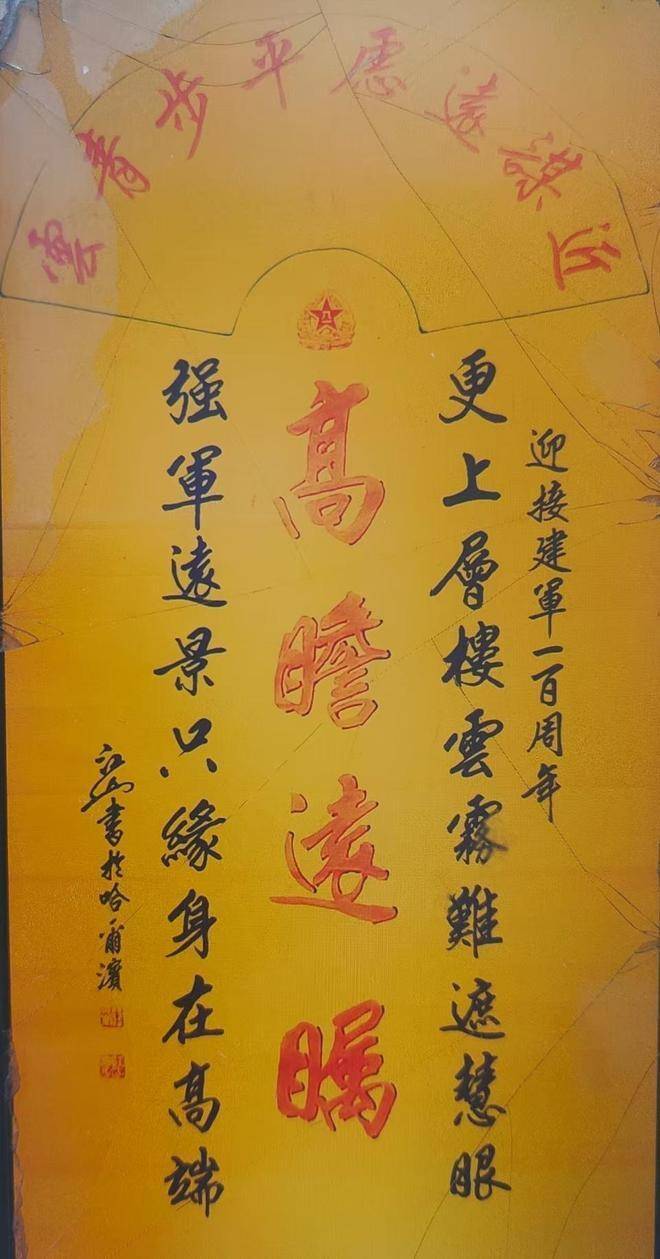 謀遠慮平步青雲
迎接建軍一百周年
更上層樓雲霧難遮慧眼
高瞻遠瞩
强軍遠景只緣身在高端
江山書於哈爾濱